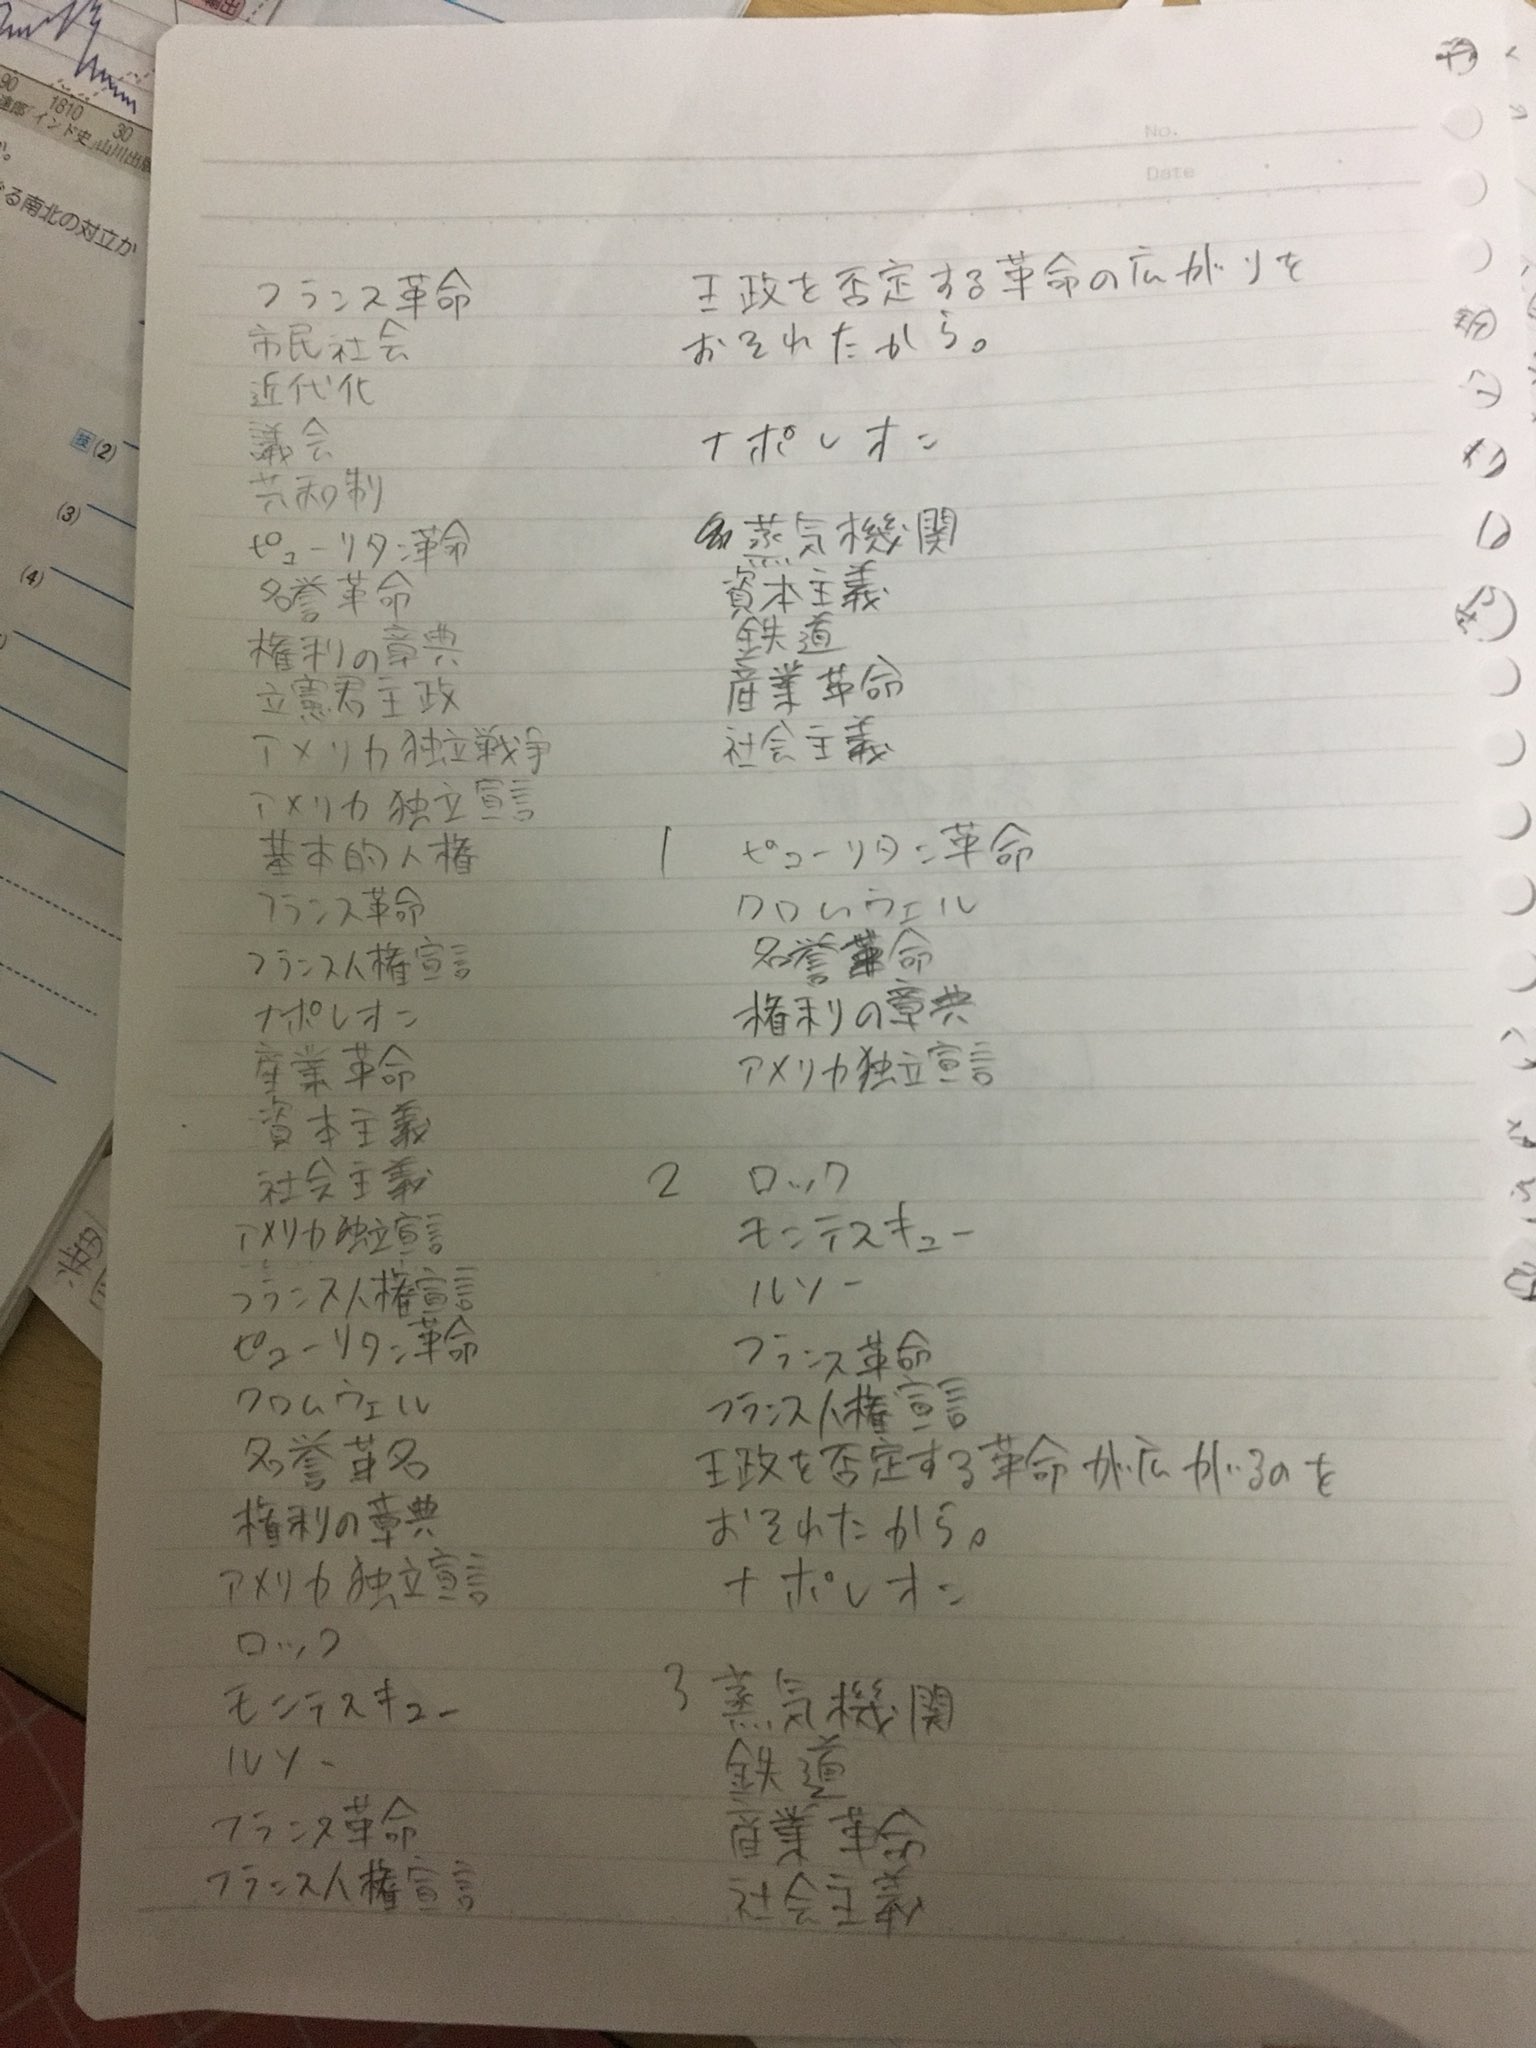 90 1810 30
インド史」山川出版
る南北の対立が
技(2)
(3)
(4)
No.
Date
フランス革命
市民社会
近代化
議会
共和制
ピューリタン革命
名誉革命
権利の章典
立憲君主政
アメリカ独立戦争
アメリカ独立宣言
基本的人権
フランス革命
フランス人権宣言
ナポレオン
産業革命
資本主義
社会主義
アメリカ独立宣言
フランス人権宣言
ピューリタン革命
クロムウェル
名誉革名
権利の章典
アメリカ独立宣言
ロック
モンテスキュー
ルソー
フランス革命
フランス人権宣言
王政を否定する革命の広がりを
おそれたから。
ナポレオン
蒸気機関
資本主義
鉄道
産業革命
社会主義
1 ピューリタン革命
クロムウェル
名誉革命
権利の章典
アメリカ独立宣言
2 ロック
モンテスキュー
ルソー
フランス革命
フランス人権宣言
王政を否定する革命が広がるのを
おそれたから。
ナポレオン
3 蒸気機関
鉄道
産業革命
社会主義